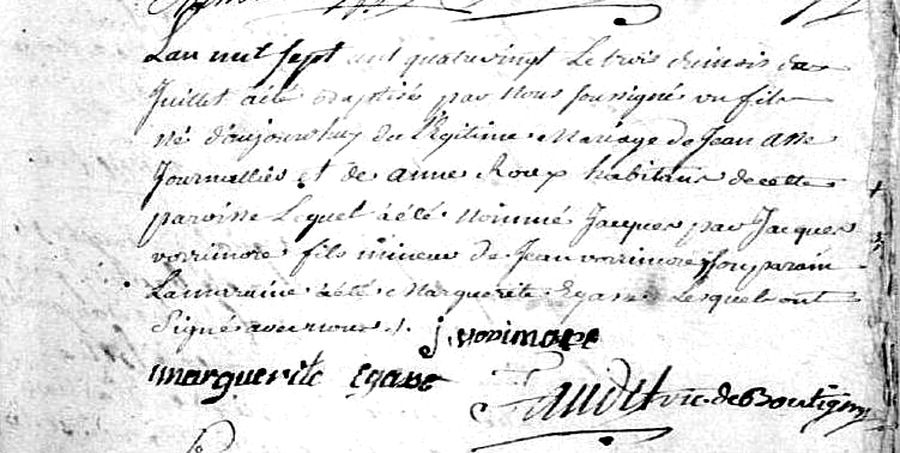 Lan mil sept cent quatrevingt Le trois du mois de
Juillet a été Baptisé par Nous soussigné un fils
né d'aujourdhuy du Légitime Mariage de Jean asse
Journallier et de anne Roux habitans de cette
paroisse Lequel a été Nommé Jacques par Jacques
vorimore fils mineur de Jean vorimore son parain
La maraine a été Marguerite Egasse Lesquels ont
Signé avec nous ./.
j. vorimore
marguerite Egasse
vic. de Boutigny